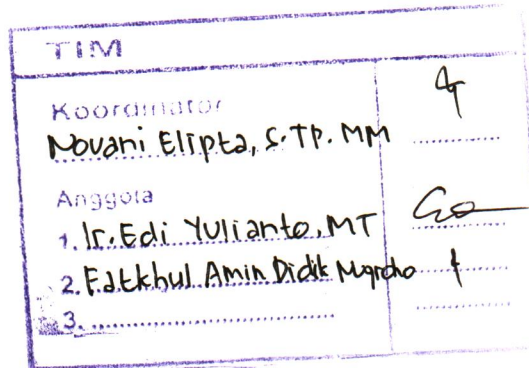 TIM
Koordinator
Novani Elipta, S.TP. MM
Anggota
1. Ir. Edi Yulianto, MT
2. Fatkhul Amin Didik
3.